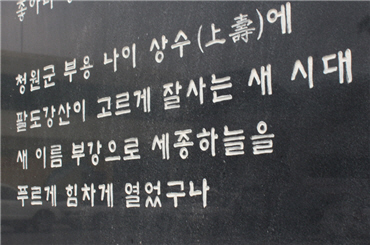 청원군 부용 나이 상수(上壽)에
팔도강산이 고르게 잘사는 새 시대
새 이름 부강으로 세종하늘을
푸르게 힘차게 열었구나